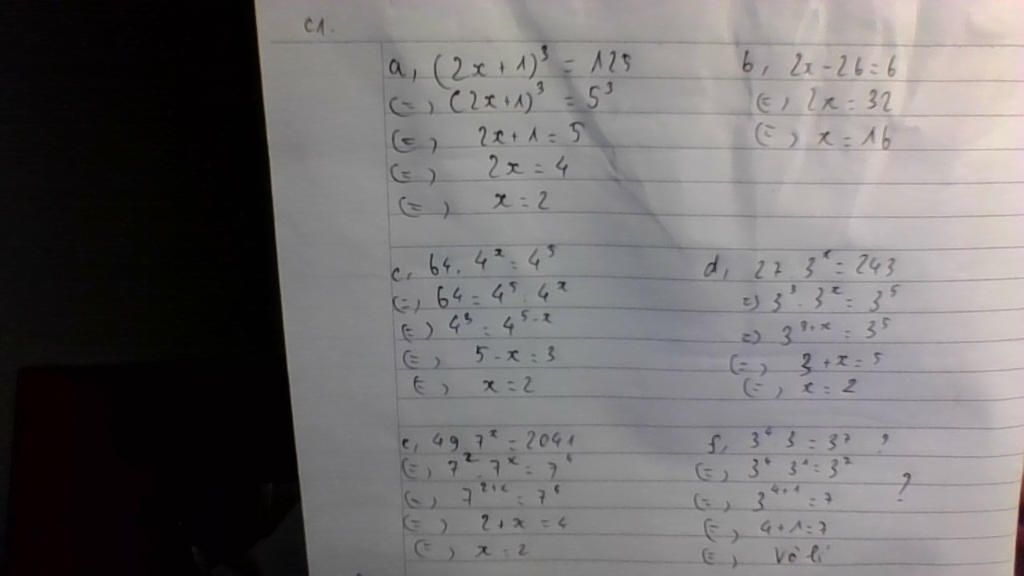 C1.
a, (2x+1)³ = 125
(=) (2x+1)³ = 5³
(=) 2x+1 = 5
(=) 2x = 4
(=) x = 2
b, 2x-26=6
(=) 2x = 32
(=) x = 16
c, 64. 4ˣ = 4⁵
(=) 64 = 4⁵ : 4ˣ
(=) 4³ = 4⁵⁻ˣ
(=) 5-x = 3
(=) x = 2
d, 27. 3ˣ = 243
=) 3³. 3ˣ = 3⁵
=) 3³⁺ˣ = 3⁵
(=) 3+x = 5
(=) x = 2
e, 49. 7ˣ = 2041
(=) 7². 7ˣ = 7⁴
(=) 7²⁺ˣ = 7⁴
(=) 2+x = 4
(=) x = 2
f, 3⁴ 3 = 37 ?
(=) 3⁴ 3¹ = 3⁷
(=) 3⁴⁺¹ = 7 ?
(=) 4+1 = 7
(=) Vô lí